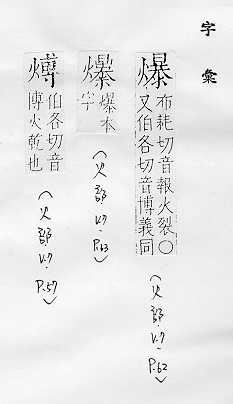 字彙
爆 布耗切音報火裂〇
又伯各切音博義同
(火部.V.7.P.62)
爆本
字
(火部V.7.P.63)
煿 伯各切音
博火乾也
(火部V.7.P.57)